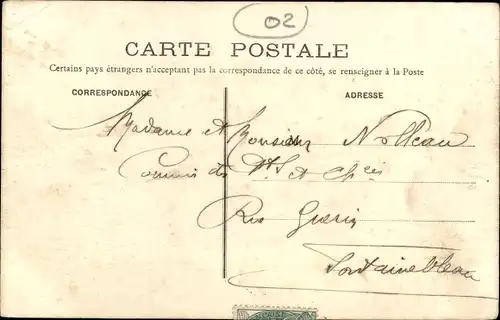 02
CARTE POSTALE
Certains pays étrangers n'acceptant pas la correspondance de ce côté, se renseigner à la Poste
CORRESPONDANCE
ADRESSE
Madame et Monsieur Nolleau
Commis des Pts et Chées
Rue Guérin
Fontainebleau